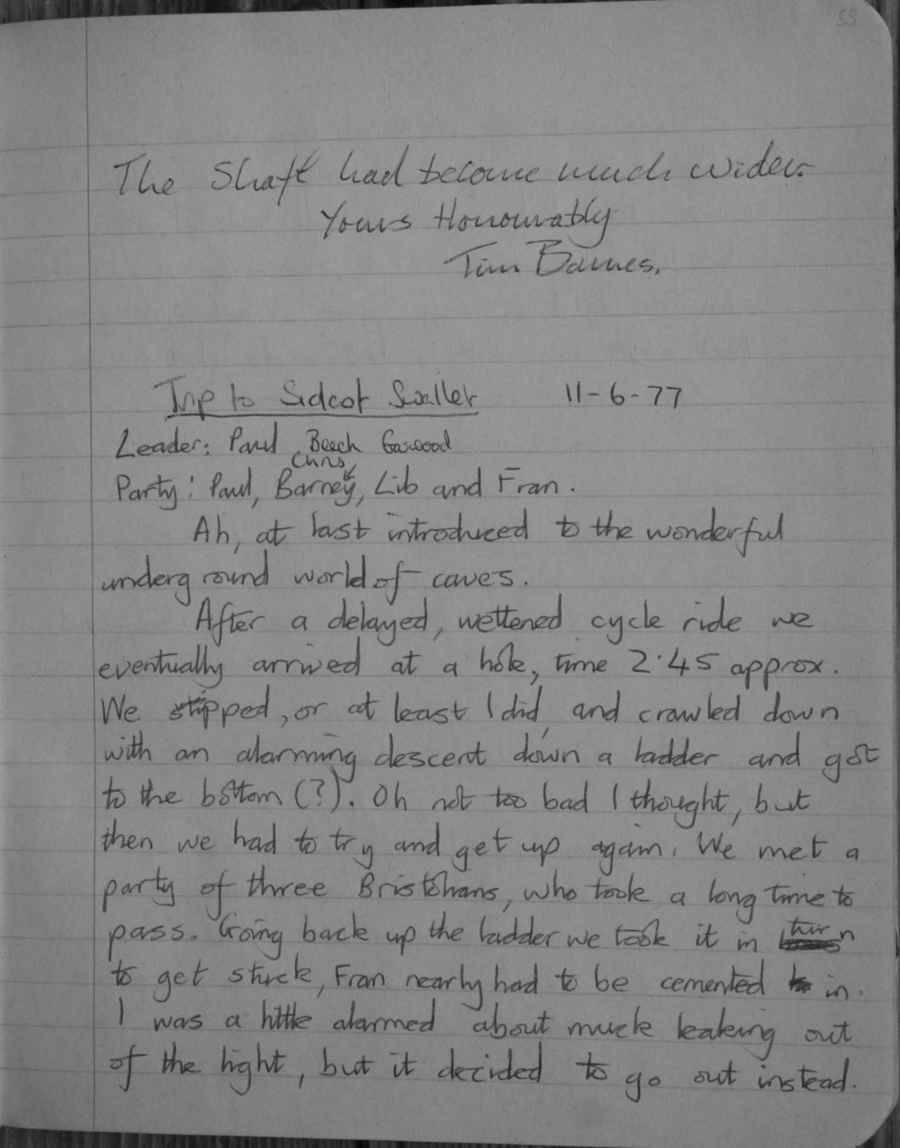 55
The Shaft had become much wider.
Yours Honourably
Tim Barnes.
Trip to Sidcot Swallet 11-6-77
Leader: Paul Beech Garwood
Chris
Party: Paul, Barney, Lib and Fran.
Ah, at last introduced to the wonderful
underground world of caves.
After a delayed, wettened cycle ride we
eventually arrived at a hole, time 2.45 approx.
We stripped, or at least I did, and crawled down
with an alarming descent down a ladder and got
to the bottom (?). Oh not too bad I thought, but
then we had to try and get up again. We met a
party of three Bristolians, who took a long time to
pass. Going back up the ladder we took it in turn
to get stuck, Fran nearly had to be cemented in.
I was a little alarmed about muck leaking out
of the light, but it decided to go out instead.